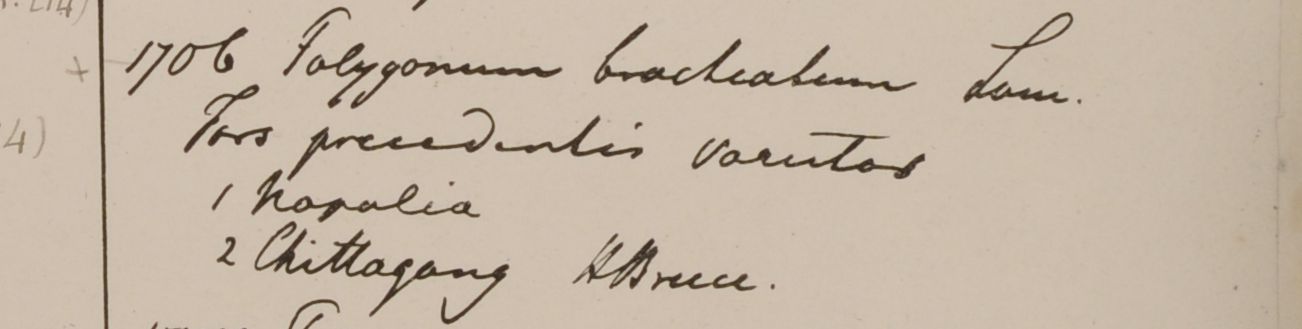 S. 214)
+ 1706 Polygonum bracteatum Lam.
4) Fors precedentis varietas
1 Napalia
2 Chittagong HBruce.